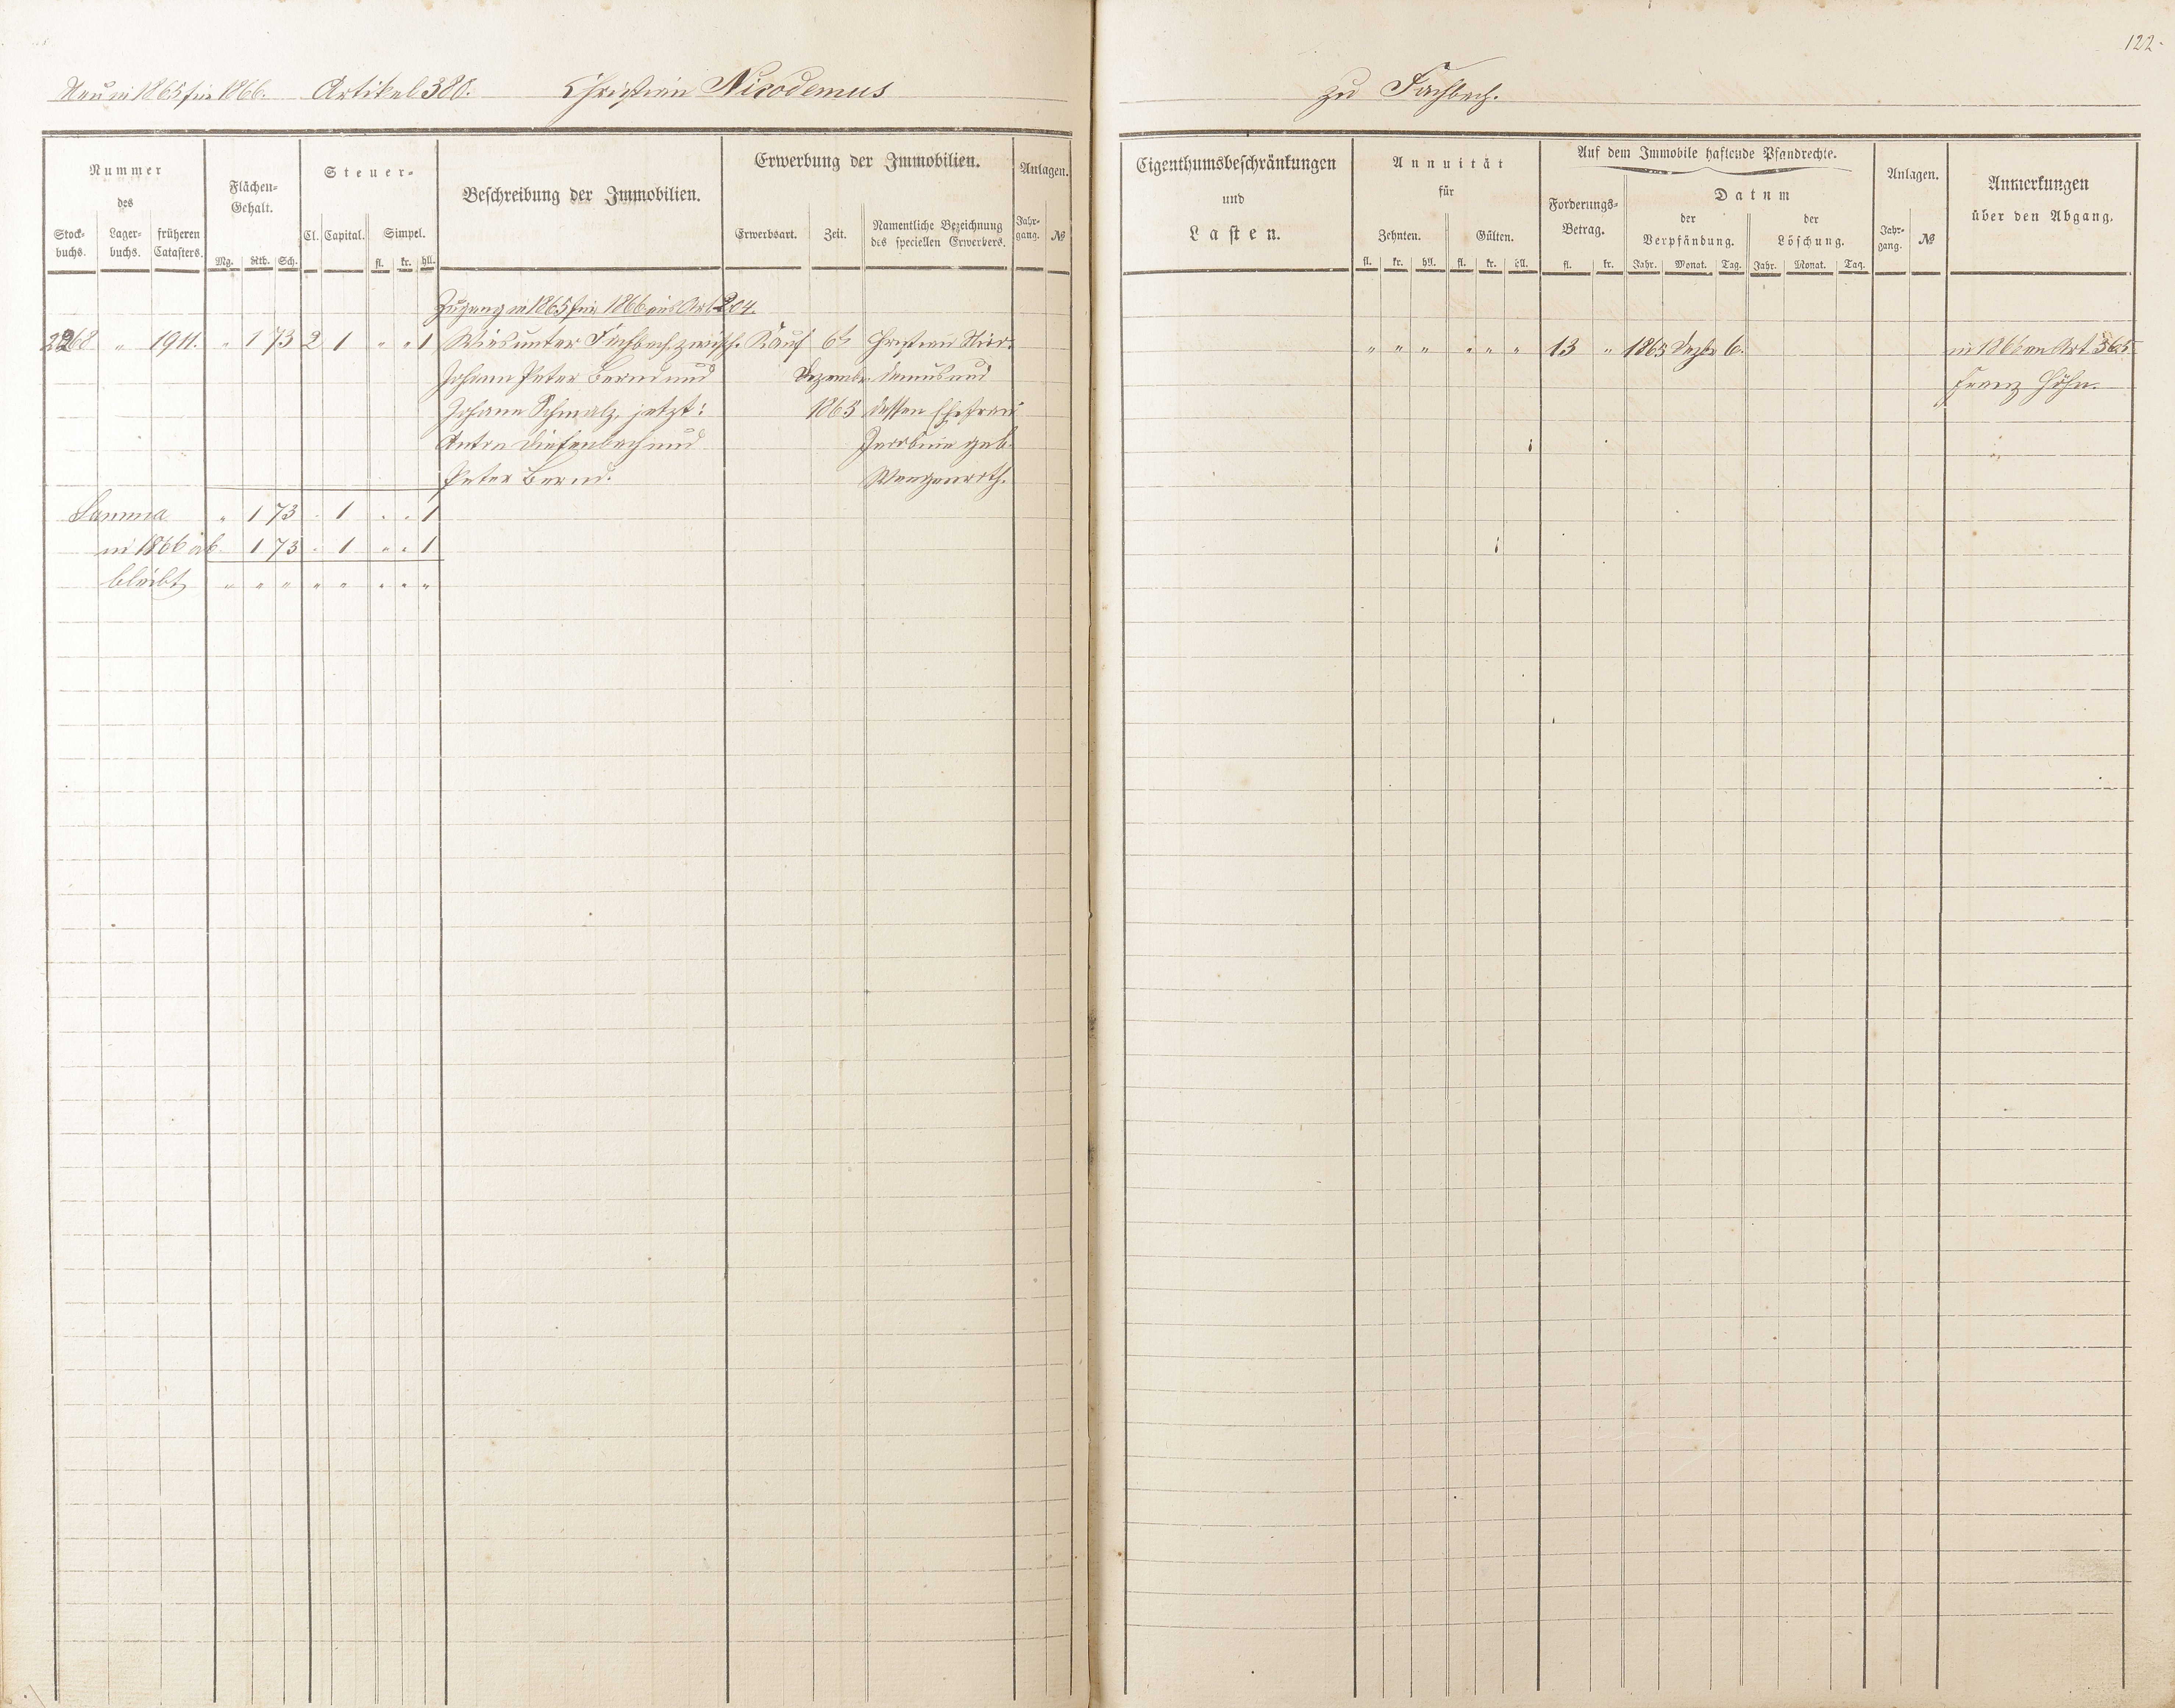 122.
Neu in 1865 für 1866. Artikel 380. Christian Nicodemus zu Fachbach.
Nummer des
Stockbuchs. Lagerbuchs. früheren Catasters.
Flächen-Gehalt.
Mg. Rth. Sch.
Steuer-
Cl. Capital. Simpel.
fl. kr. hll.
Beschreibung der Immobilien.
Erwerbung der Immobilien.
Erwerbsart. Zeit. Namentliche Bezeichnung des speciellen Erwerbers.
Anlagen.
Jahrgang. №
Eigenthumsbeschränkungen
und
Lasten.
Annuität
für
Zehnten. Gülten.
fl. kr. hll. fl. kr. hll.
Auf dem Immobile haftende Pfandrechte.
Forderungs-Betrag.
fl. kr.
Datum
der Verpfändung. der Löschung.
Jahr. Monat. Tag. Jahr. Monat. Tag.
Anlagen.
Jahrgang. №
Anmerkungen
über den Abgang.
Zugang in 1865 für 1866 aus Art 204.
2268 " 1911. " 1 73 2 1 " " 1 Wies unter Fachbach zwisch. Kauf 6t Christian Nico- " " " " " " 13 " 1865 Dezbr 6. in 1866 an Art 365
Johann Peter Bernd und Dezember demus und Franz Höhn.
Johann Schmalz, jetzt: 1865 dessen Ehefrau
Anton Diefenbach und Jacobine geb.
Peter Bernd. Wengenroth.
Summa " 1 73 . 1 . . 1
in 1866 ab 1 73 . 1 " " 1
bleibt " " " " " " " "